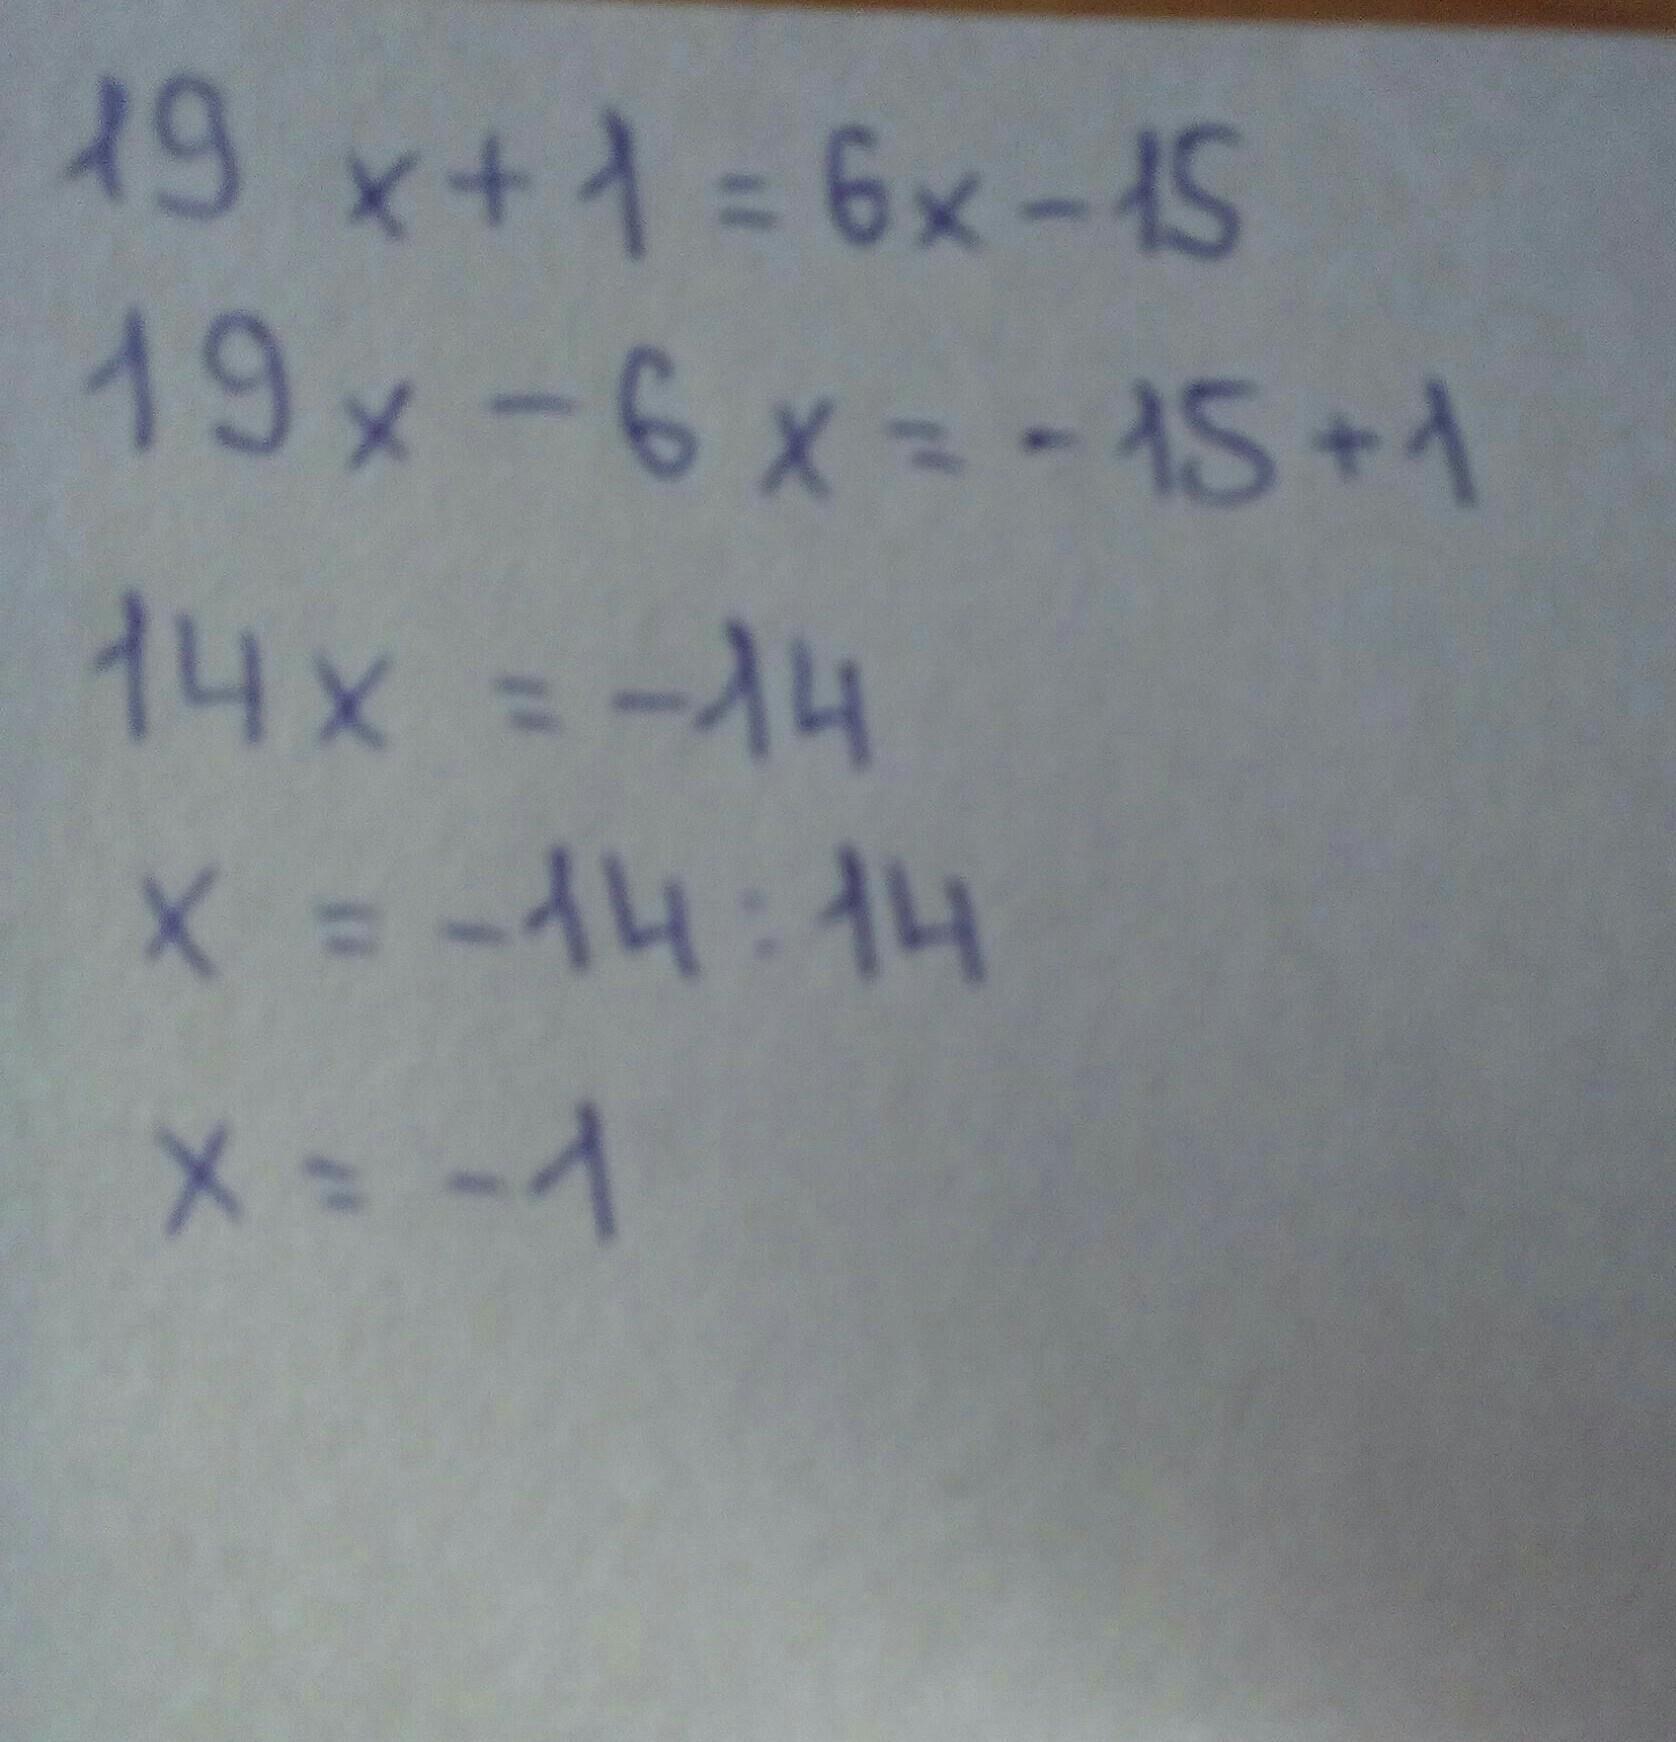 19 x + 1 = 6x - 15
19x - 6x = -15 + 1
14x = -14
x = -14 : 14
x = -1